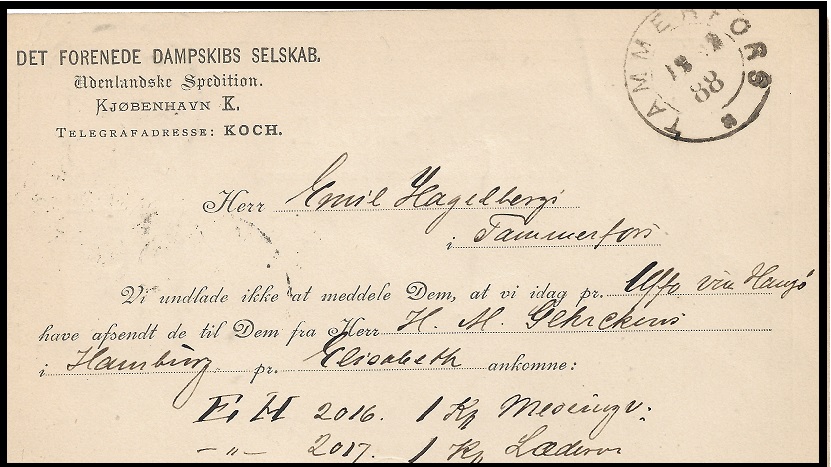 DET FORENEDE DAMPSKIBS SELSKAB.
Udenlandske Spedition.
KJØBENHAVN K.
TELEGRAFADRESSE: KOCH.
TAMMERFORS
88
Herr Emil Hagelbergs
i Tammerfors
Vi undlade ikke at meddele Dem, at vi idag pr. via Hangö
have afsendt de til Dem fra Herr H. M. Gehrckens
i Hamburg pr. Elisabeth ankomne:
EH 2016. 1 Kp Messingv.
-„- 2017. 1 Kp Lædervr